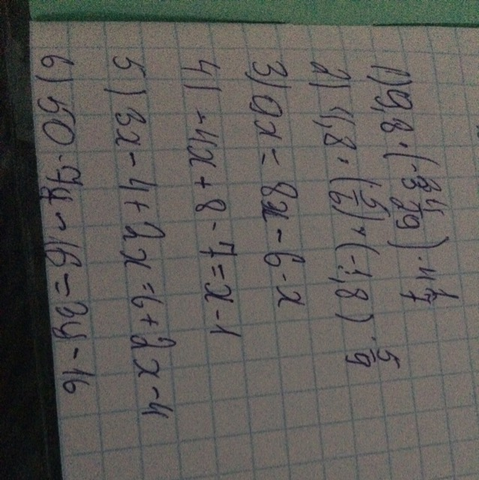 1) 9,8 · (-3 4/29) · 4 1/7
2) 4,8 · (5/6) · (-1,8) · 5/9
3) 9x = 8x - 6 - x
4) -4x + 8 - 7 = x - 1
5) 3x - 4 + 2x = 6 + 2x - 4
6) 50 - 7y - 16 = 2y - 16